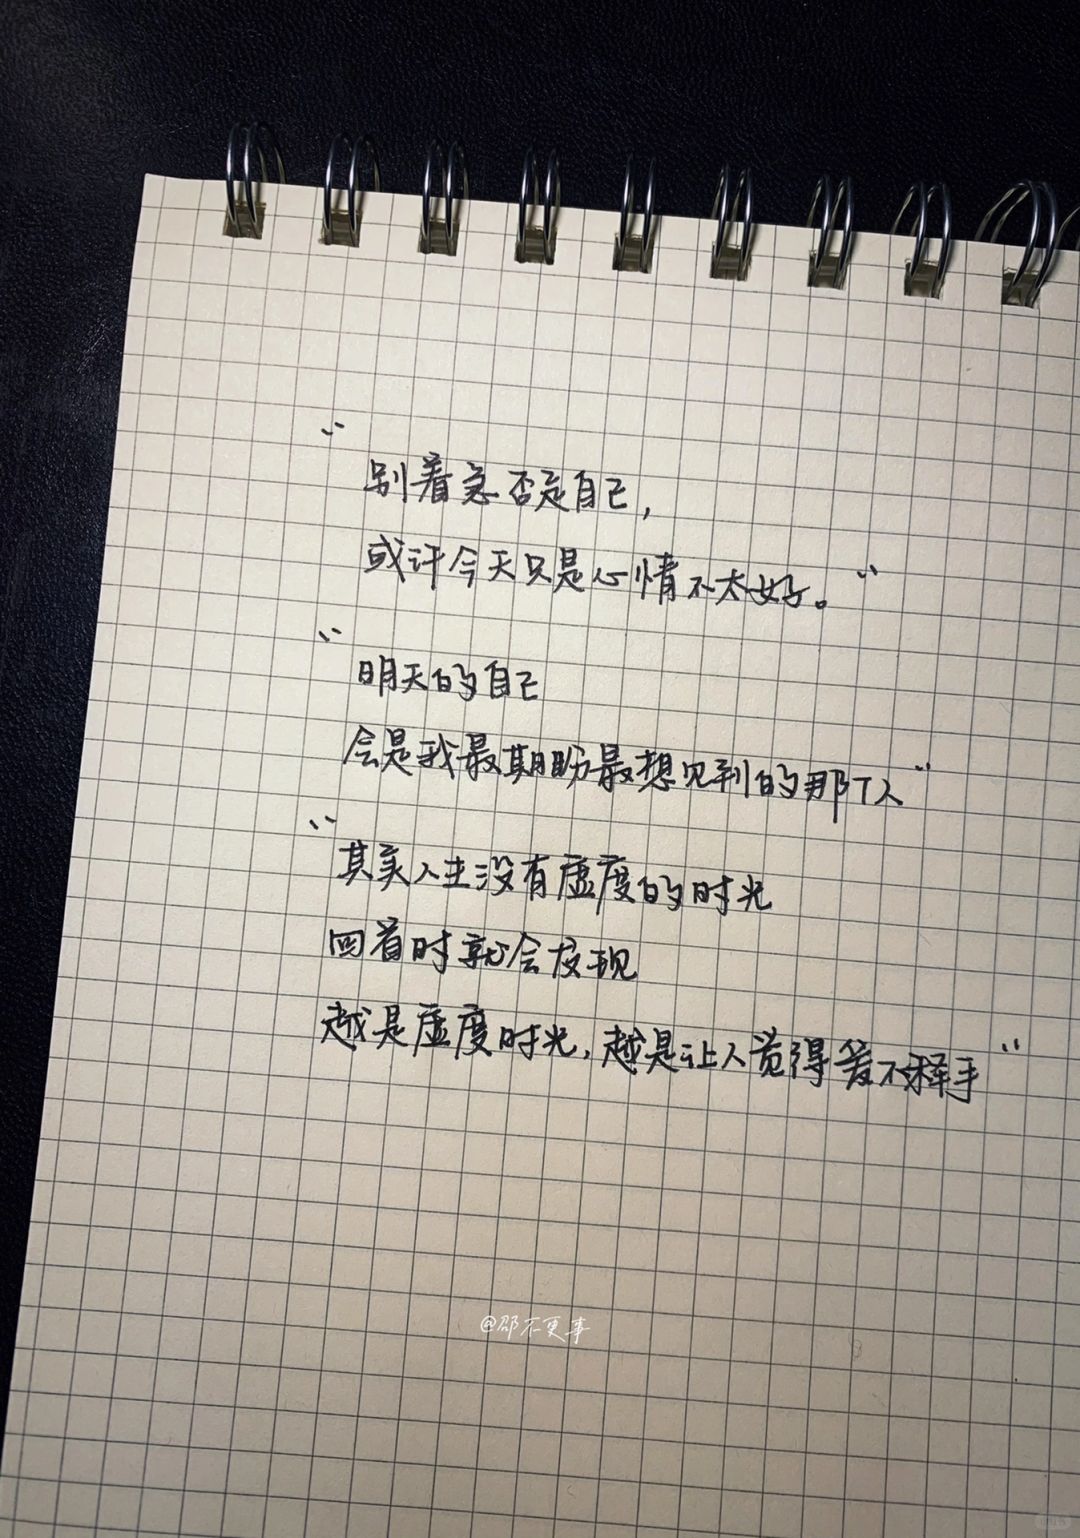 “
别着急否定自己，
或许今天只是心情不太好。”
“
明天的自己
会是我最期盼最想见到的那个人”
“
其实人生没有虚度的时光
回首时就会发现
越是虚度时光，越是让人觉得爱不释手”
@邵不更事